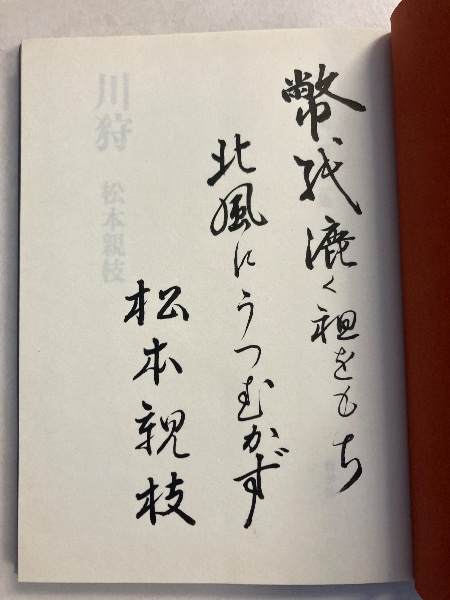 幣紙漉く祖をもち
北風にうつむかず
松本親枝
川狩
松本親枝